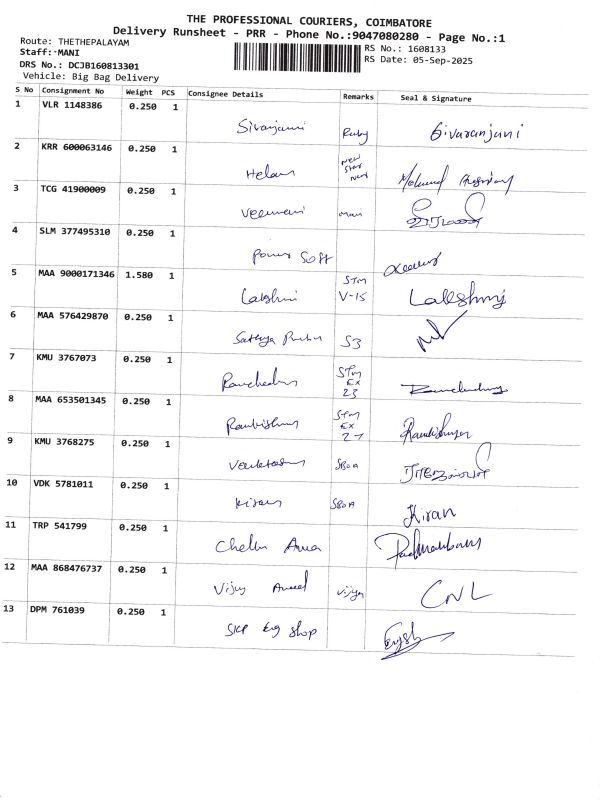 THE PROFESSIONAL COURIERS, COIMBATORE
Delivery Runsheet - PRR - Phone No.:9047080280 - Page No.:1
Route: THETHEPALAYAM
Staff: MANI
DRS No.: DCJB160813301
Vehicle: Big Bag Delivery
RS No.: 1608133
RS Date: 05-Sep-2025
S No Consignment No Weight PCS Consignee Details Remarks Seal & Signature
1 VLR 1148386 0.250 1
Sivaranjani Ruby Sivaranjani
2 KRR 600063146 0.250 1
Helan NEW STAR Mohamed
3 TCG 41900009 0.250 1
Veemani
4 SLM 377495310 0.250 1
Power Soft
5 MAA 9000171346 1.580 1
Lakshmi STM V-15 Lakshmi
6 MAA 576429870 0.250 1
Sathya S3
7 KMU 3767073 0.250 1
STM EX 23
8 MAA 653501345 0.250 1
STM EX 27
9 KMU 3768275 0.250 1
SBOA
10 VDK 5781011 0.250 1
Kiran SBOA Kiran
11 TRP 541799 0.250 1
12 MAA 868476737 0.250 1
Vijay Anand Vijay CNL
13 DPM 761039 0.250 1
SKP Egg Shop